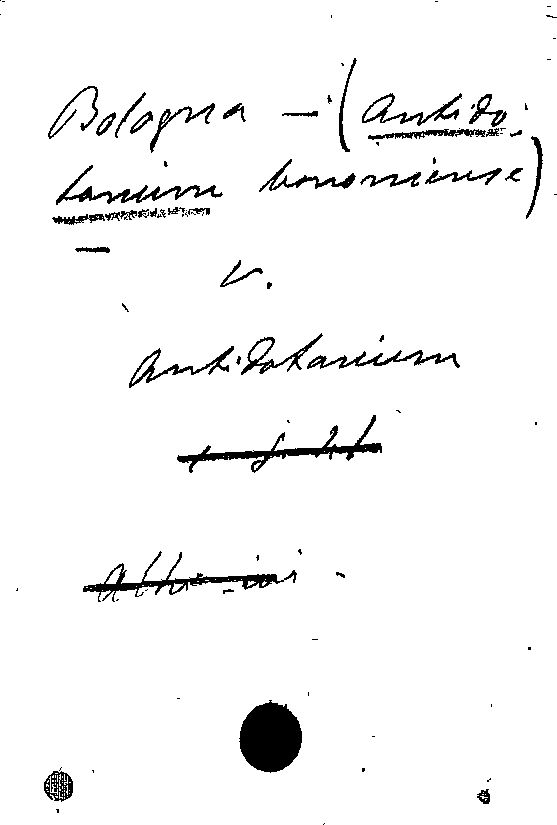 Bologna — (Antido-
tarium bononiense)
—
v.
Antidotarium